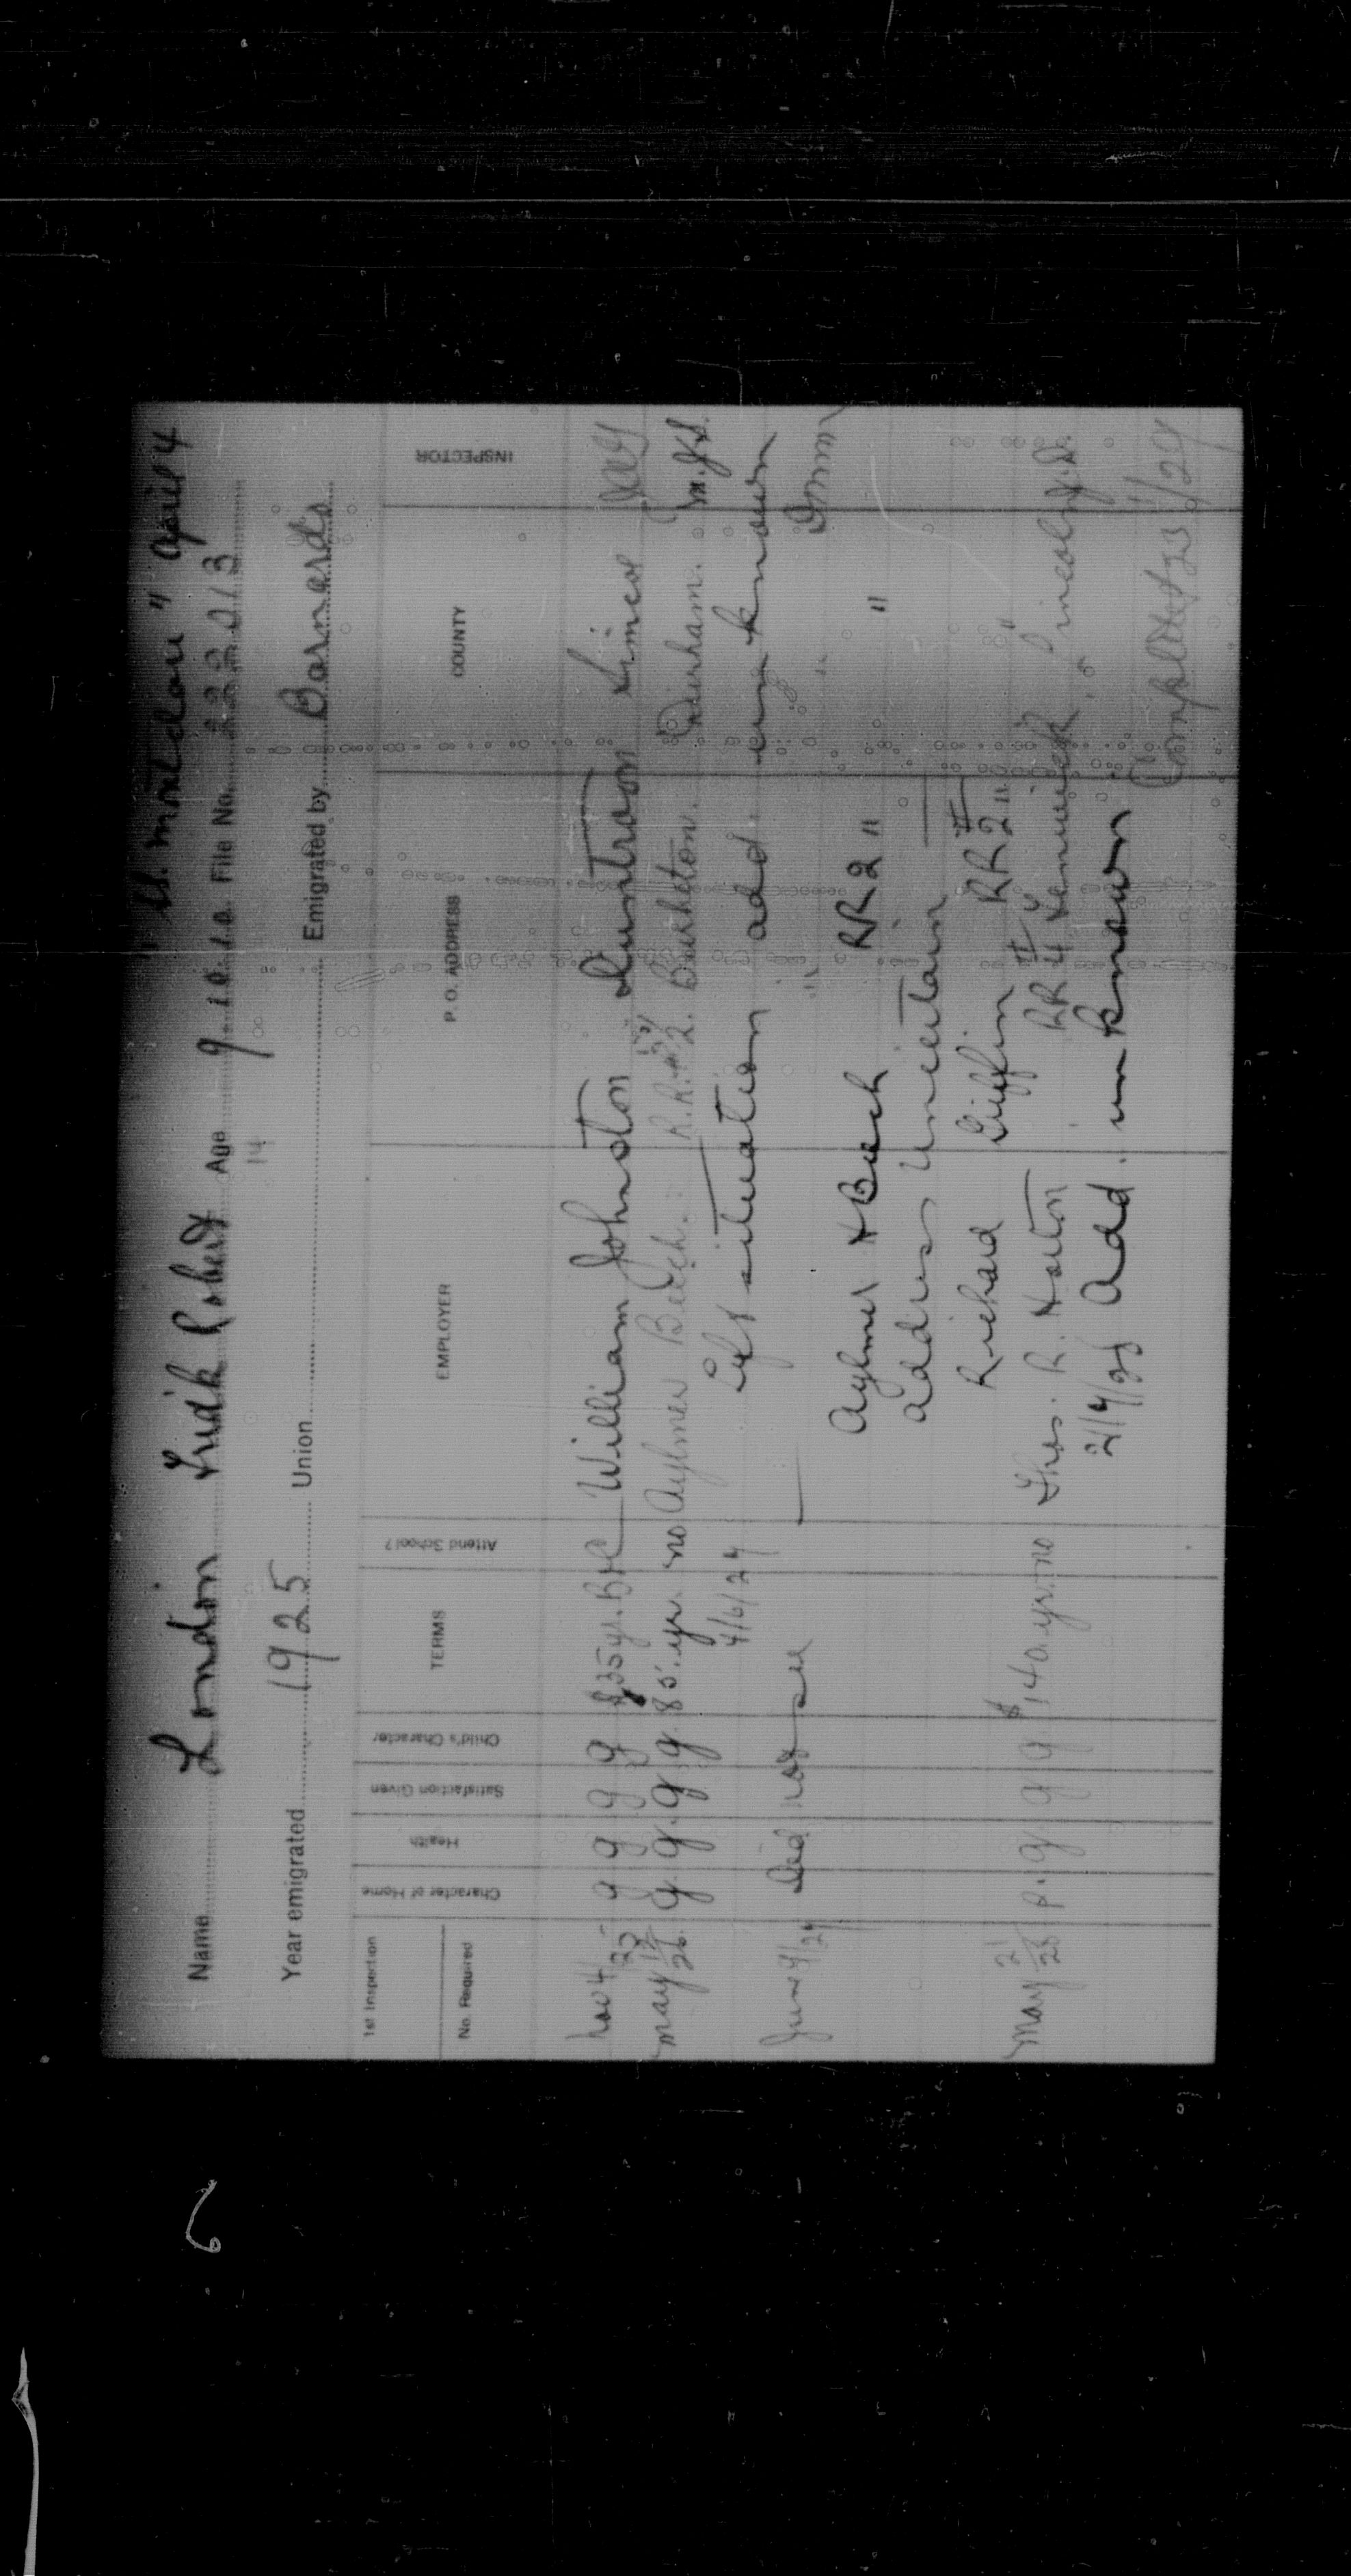 SS. Montclare" April 4
Name London Fredk Robert Age 9.10.10. File No. 222013
14
Year emigrated 1925 Union Emigrated by Barnardo
1st Inspection
No. Required
Character of Home
Health
Satisfaction Given
Child's Character
TERMS
Attend School?
EMPLOYER
P. O. ADDRESS
COUNTY
INSPECTOR
Nov 4/25 g g g $35 yr. William Johnston Duntroon Simcoe
May 17/26. g. g. g. g. 85. yr. no Aylmer Beech. R.R.#2. Burketon. Durham.
4/6/27 Left situation add. unknown
June 9/27 Did not see " "
Aylmer H Beech RR 2 " "
address Uncertain
Richard Griffin RR #2 " "
May 21/28 p. g g g $140. yr. no Thos. R. RR #4 Lincoln J.D.
21/4/28 Add. unknown
Completed 23/1/29
6